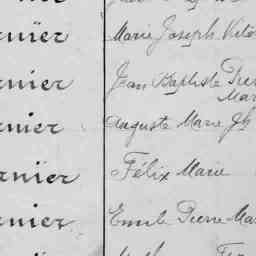 rnier Marie Joseph Victo
rnier Jean Baptiste Pier
Mar
rnier Auguste Marie Jh
rnier Félix Marie
rnier Emile Pierre Ma